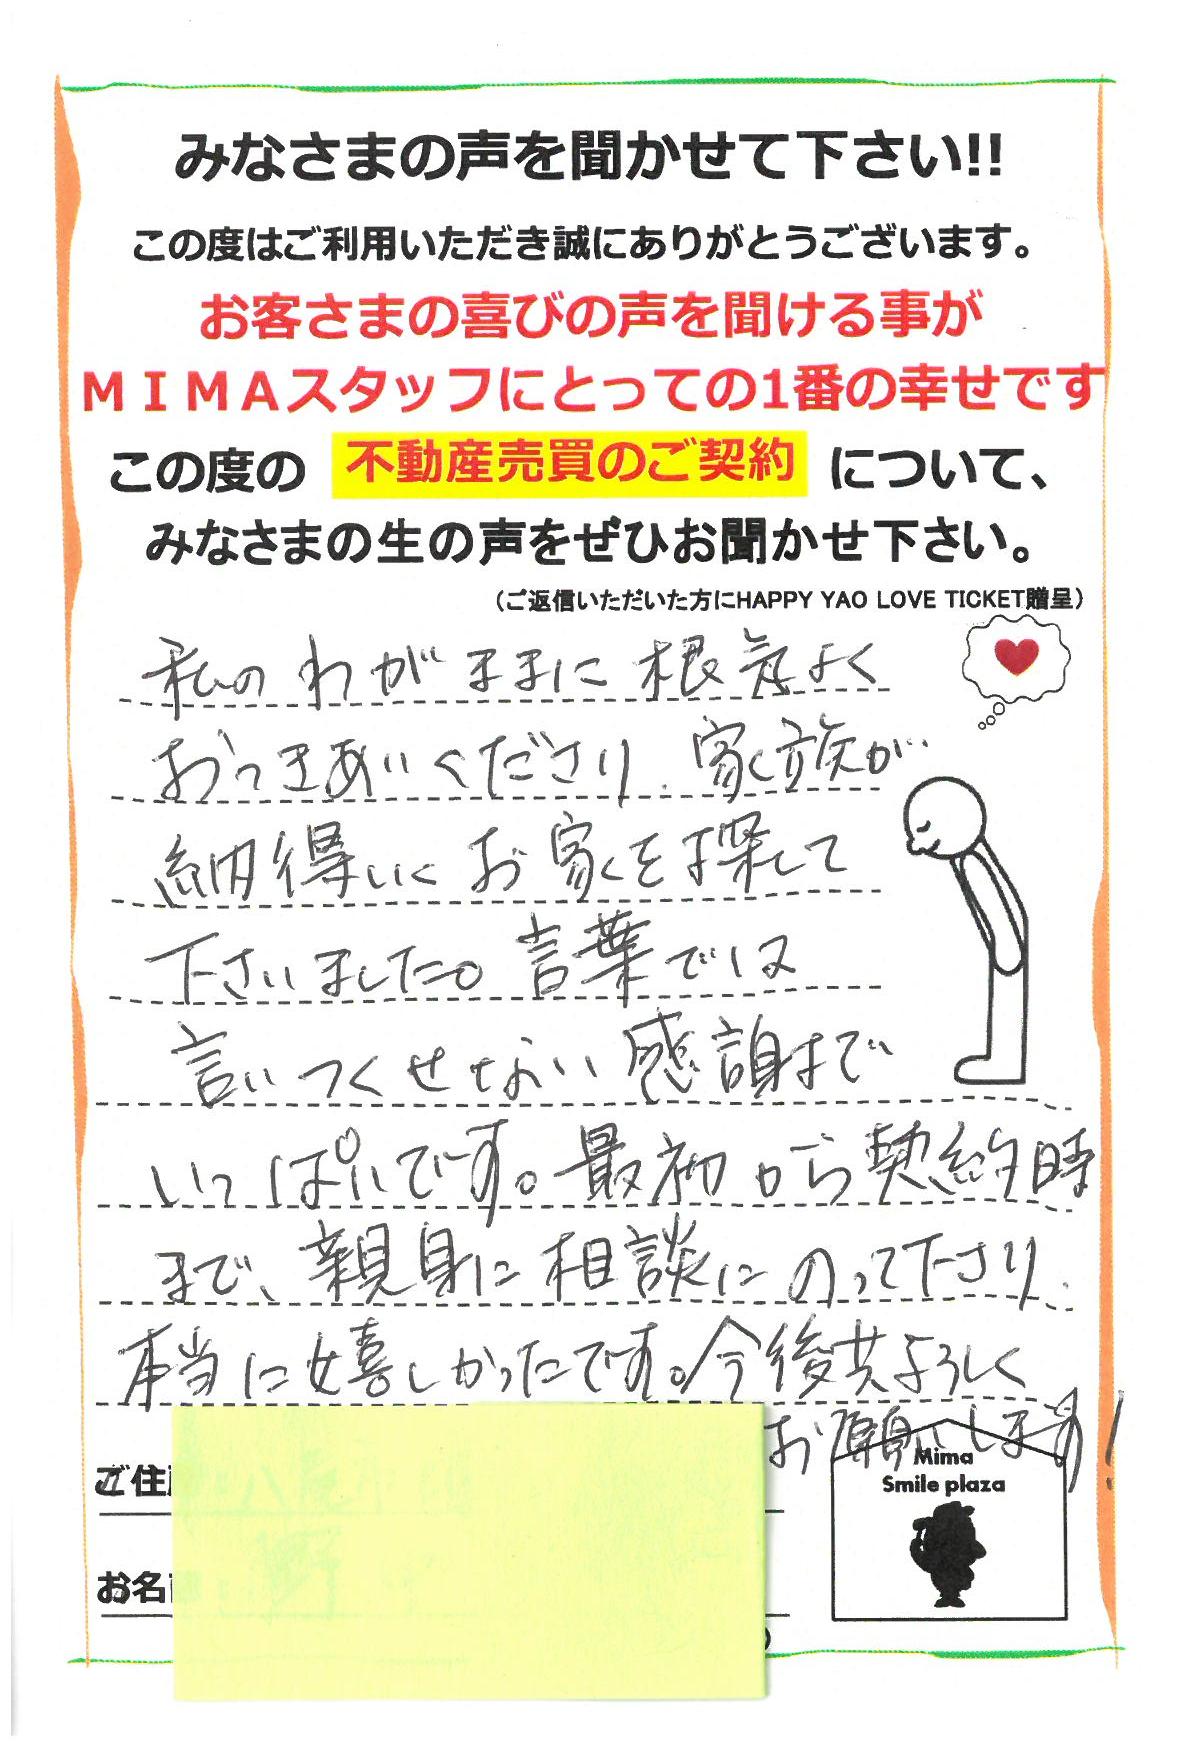 みなさまの声を聞かせて下さい!!
この度はご利用いただき誠にありがとうございます。
お客さまの喜びの声を聞ける事が
ＭＩＭＡスタッフにとっての1番の幸せです
この度の 不動産売買のご契約 について、
みなさまの生の声をぜひお聞かせ下さい。
（ご返信いただいた方にHAPPY YAO LOVE TICKET贈呈）
私のわがままに根気よく
おつきあいくださり、家族が
納得いくお家を探して
下さいました。言葉では
言いつくせない感謝で
いっぱいです。最初から契約時
まで、親身に相談にのって下さり、
本当に嬉しかったです。今後共よろしく
お願いします！
ご住
お名
Mima
Smile plaza